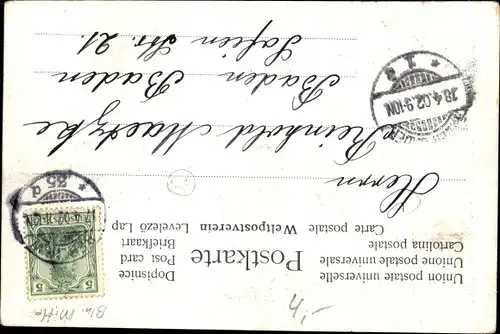 Union postale universelle
Unione postale universale
Cartolina postale
Carte postale
Postkarte
Weltpostverein
Dopisnice
Post card
Briefkaart
Levelező Lap
Herrn
Reinhold Maetzke
Baden Baden
Sofien Str. 21.
* 35 a
5 5
28.4.02.9-10V.
* 2 a
Bln. Mitte
4,-